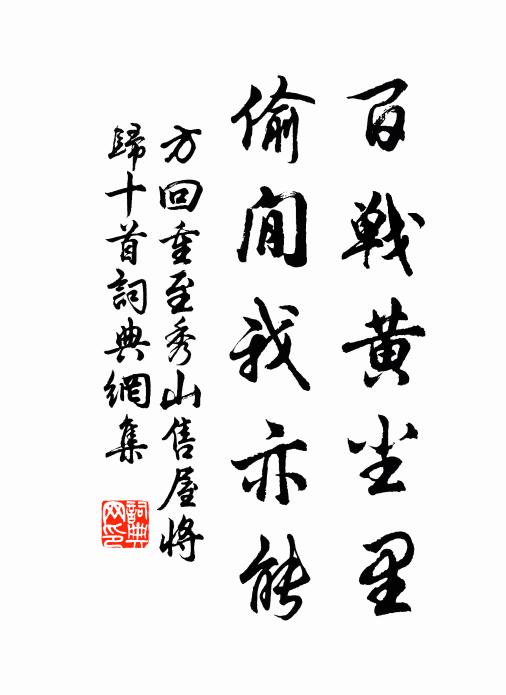 百戰黄尘里
偷閒我亦能
方回重至秀山售屋將
歸十首詞典網集
詞典
网印